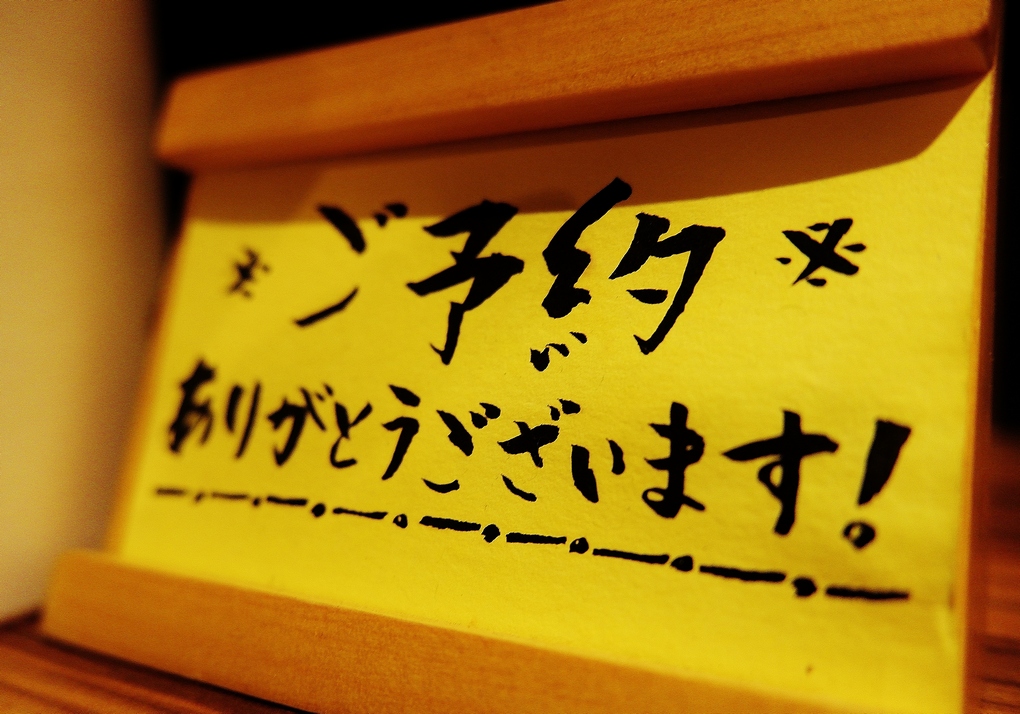 ※ ご予約 ※
ありがとうございます!